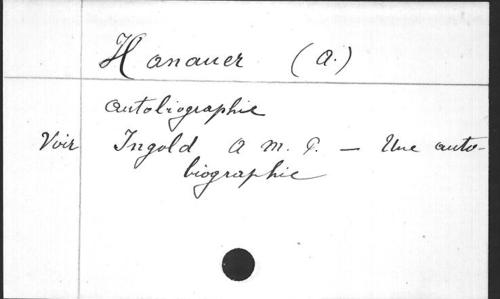 Hanauer (A.)
Autobiographie
Voir Ingold A M. P. — Une auto-
biographie